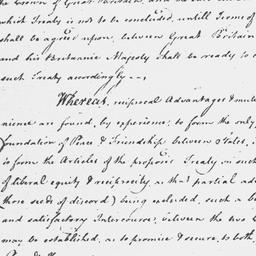 the Crown of Great Britain, and
which Treaty is not to be concluded, untill Terms of
shall be agreed upon between Great Britain
and his Britannic Majesty shall be ready to
such Treaty accordingly
Whereas, reciprocal Advantages &
nience are found, by experience, to form the only
foundation of Peace & Friendship between States,
is form the Articles of the proposed Treaty, in such
of liberal equity & reciprocity, as that partial ad
those seeds of discord) being excluded, such a
and satisfactory Intercourse, between the two
may be established, as to promise & secure, to both,